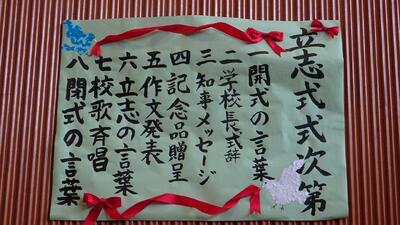 立志式式次第
一開式の言葉
二学校長式辞
三知事メッセージ
四記念品贈呈
五作文発表
六立志の言葉
七校歌斉唱
八閉式の言葉